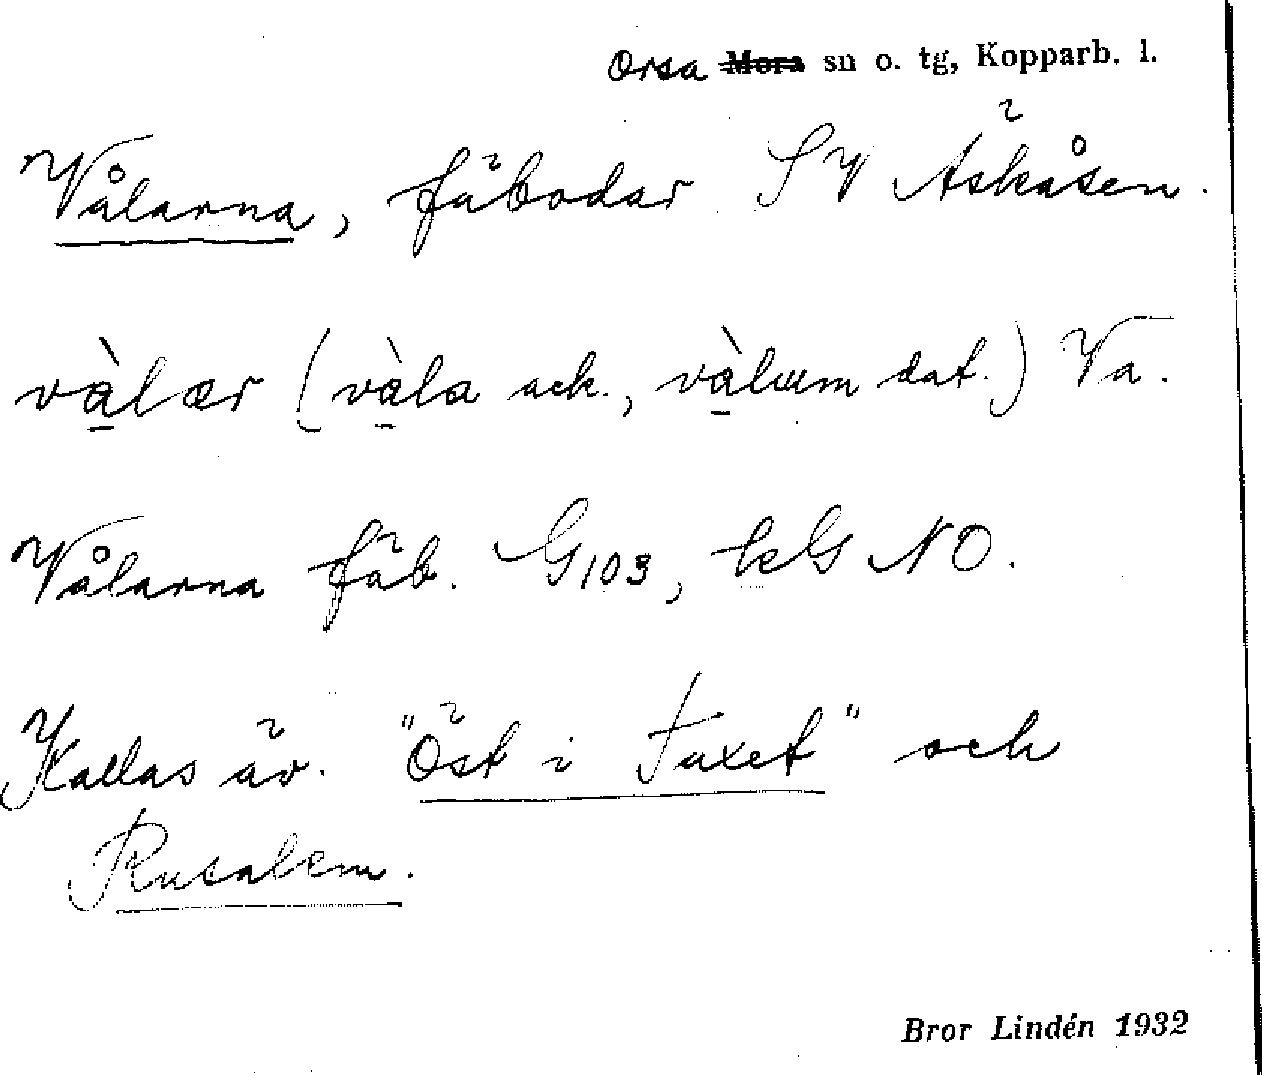 Orsa Mora sn o. tg, Kopparb. l.
Vålarna, fäbodar SV Äskåsen.
và̱lær (và̱la ack., và̱lɯm dat.) Va.
Vålarna fäb. G103, kG NO.
Kallas äv. "Öst i Taxet" och
Rusalem.
Bror Lindén 1932